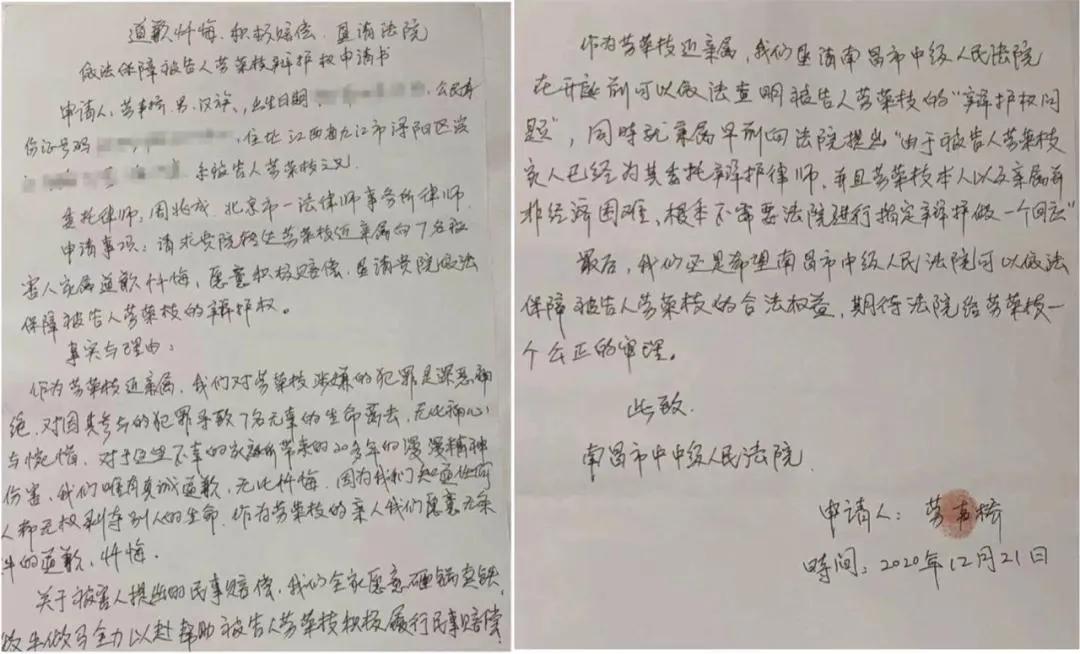 道歉忏悔、积极赔偿、恳请法院
依法保障被告人劳荣枝辩护权申请书
申请人:劳 桥、男、汉族,出生日期 ,公民身
份证号码 ,住址江西省九江市浔阳区滨
系被告人劳荣枝之兄。
委托律师:周兆成、北京市一法律师事务所律师.
申请事项:请求贵院转达劳荣枝近亲属向7名被
害人家属道歉忏悔,愿意积极赔偿,恳请贵院依法
保障被告人劳荣枝的辩护权。
事实与理由:
作为劳荣枝近亲属,我们对劳荣枝涉嫌的犯罪是深恶痛
绝,对因其参与的犯罪导致7名无辜的生命离去,无比痛心
与惋惜,对于这些不幸的家庭所带来的20多年的漫漫精神
伤害,我们唯有真诚道歉,无比忏悔,因为我们知道任何
人都无权剥夺别人的生命,作为劳荣枝的亲人我们愿意无条
件的道歉,忏悔。
关于被害人提出的民事赔偿,我们全家愿意砸锅卖铁、
做牛做马全力以赴帮助被告人劳荣枝积极履行民事赔偿
作为劳荣枝近亲属,我们恳请南昌市中级人民法院
在开庭前可以依法查明被告人劳荣枝的“辩护权问
题”,同时就亲属早前向法院提出“由于被告人劳荣枝
家人已经为其委托辩护律师,并且劳荣枝本人以及亲属并
非经济困难、根本不需要法院进行指定辩护做一个回应”
最后,我们还是希望南昌市中级人民法院可以依法
保障被告人劳荣枝的合法权益,期待法院给劳荣枝一
个公正的审理。
此致.
南昌市中中级人民法院.
申请人:劳 桥
时间:2020年12月21日